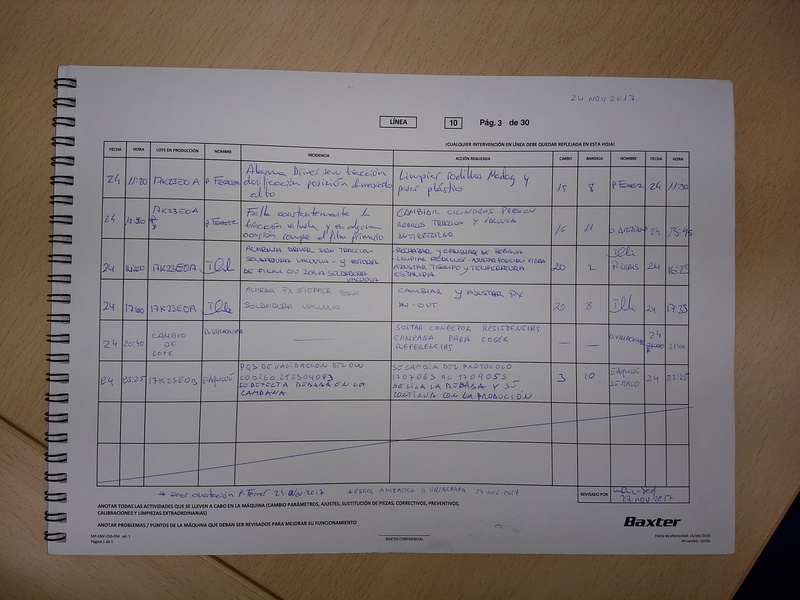 24 NOV 2017
LÍNEA 10 Pág. 3 de 30
¡CUALQUIER INTERVENCIÓN EN LÍNEA DEBE QUEDAR REFLEJADA EN ESTA HOJA!
FECHA HORA LOTE EN PRODUCCIÓN NOMBRE INCIDENCIA ACCIÓN REALIZADA CARRO BANDEJA NOMBRE FECHA HORA
24 11:20 17K23E0A P. FERRER Alarma Driver servo tracción
dosificación posición demasiado
alto
Limpiar rodillos Madag y
poner plástico
15 8 P. FERRER 24 11:30
24 17K23E0A P. FERRER Falla constantemente la
tracción válvula y en alguna
ocasión rompe el film primario
CAMBIAR CILINDROS PRESION
RODILLOS TRACCION Y VALVULA
ANTIRETORNO
16 11 24
24 17K23E0A ALARMA DRIVER SERVO TRACCION
SOLDADURA VALVULA
DE FILM EN ZONA SOLDADURA
VALVULA
AJUSTAR TIEMPO Y TEMPERATURA
20 2 24 16:25
24 17:00 17K23E0A ALARMA PX STOPPER ZONA
SOLDADURA VALVULA
CAMBIAR Y AJUSTAR PX
IN-OUT
20 8 24 17:35
24 20:40 CAMBIO
DE
LOTE
D. VILLACAMPA —
SOLTAR CONECTOR RESISTENCIAS
CAMPANA PARA COGER
REFERENCIAS
— — D. VILLACAMPA 24 21:00
24 23:25 17K23E0B
CÓDIGO
SE DETECTA REBABA EN LA
CAMPANA
SE CAMBIA DEL PROTOCOLO
1707065 AL 1709055
SE LIJA LA REBABA Y SE
CONTINUA CON LA PRODUCIÓN
3 10 24 23:25
* error anotación P. Ferrer 24 NOV 2017 * ERROR ANOTACIÓN D. VILLACAMPA 24-NOV-2017
REVISADO POR
27 NOV 2017
ANOTAR TODAS LAS ACTIVIDADES QUE SE LLEVEN A CABO EN LA MÁQUINA (CAMBIO PARÁMETROS, AJUSTES, SUSTITUCIÓN DE PIEZAS, CORRECTIVOS, PREVENTIVOS,
CALIBRACIONES Y LIMPIEZAS EXTRAORDINARIAS)
ANOTAR PROBLEMAS / PUNTOS DE LA MÁQUINA QUE DEBAN SER REVISADOS PARA MEJORAR SU FUNCIONAMIENTO
Baxter
Página 1 de 1
BAXTER CONFIDENCIAL